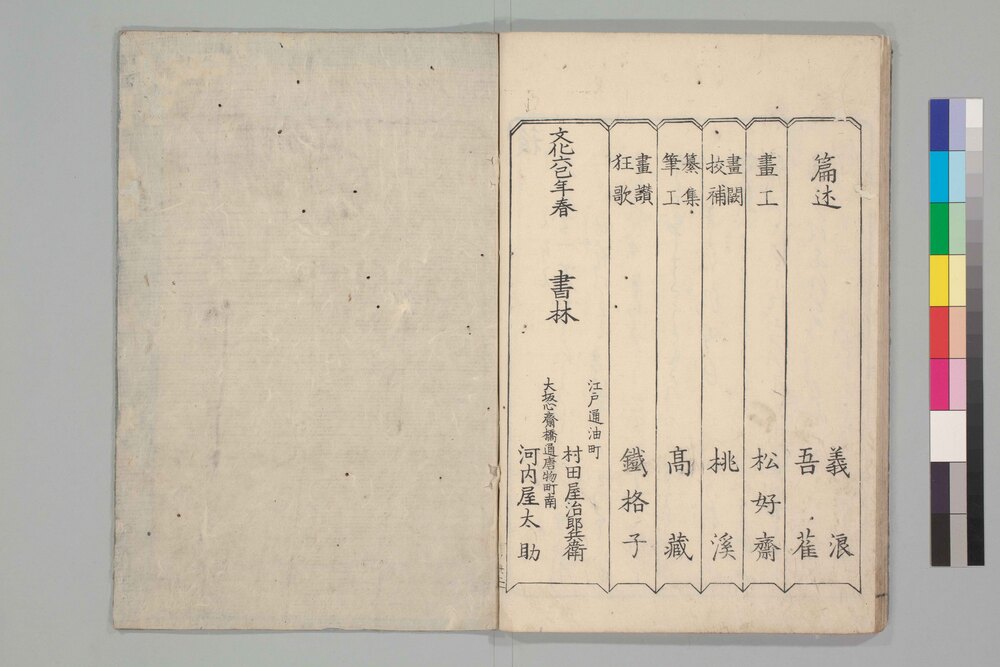 篇述
義浪
吾雀
畫工
松好齋
畫闕
挍補
桃溪
纂集
筆工
髙藏
畫讃
狂歌
鐵格子
文化六巳年春
書林
江戸通油町
村田屋治郎兵衛
大坂心齋橋通唐物町南
河内屋太助